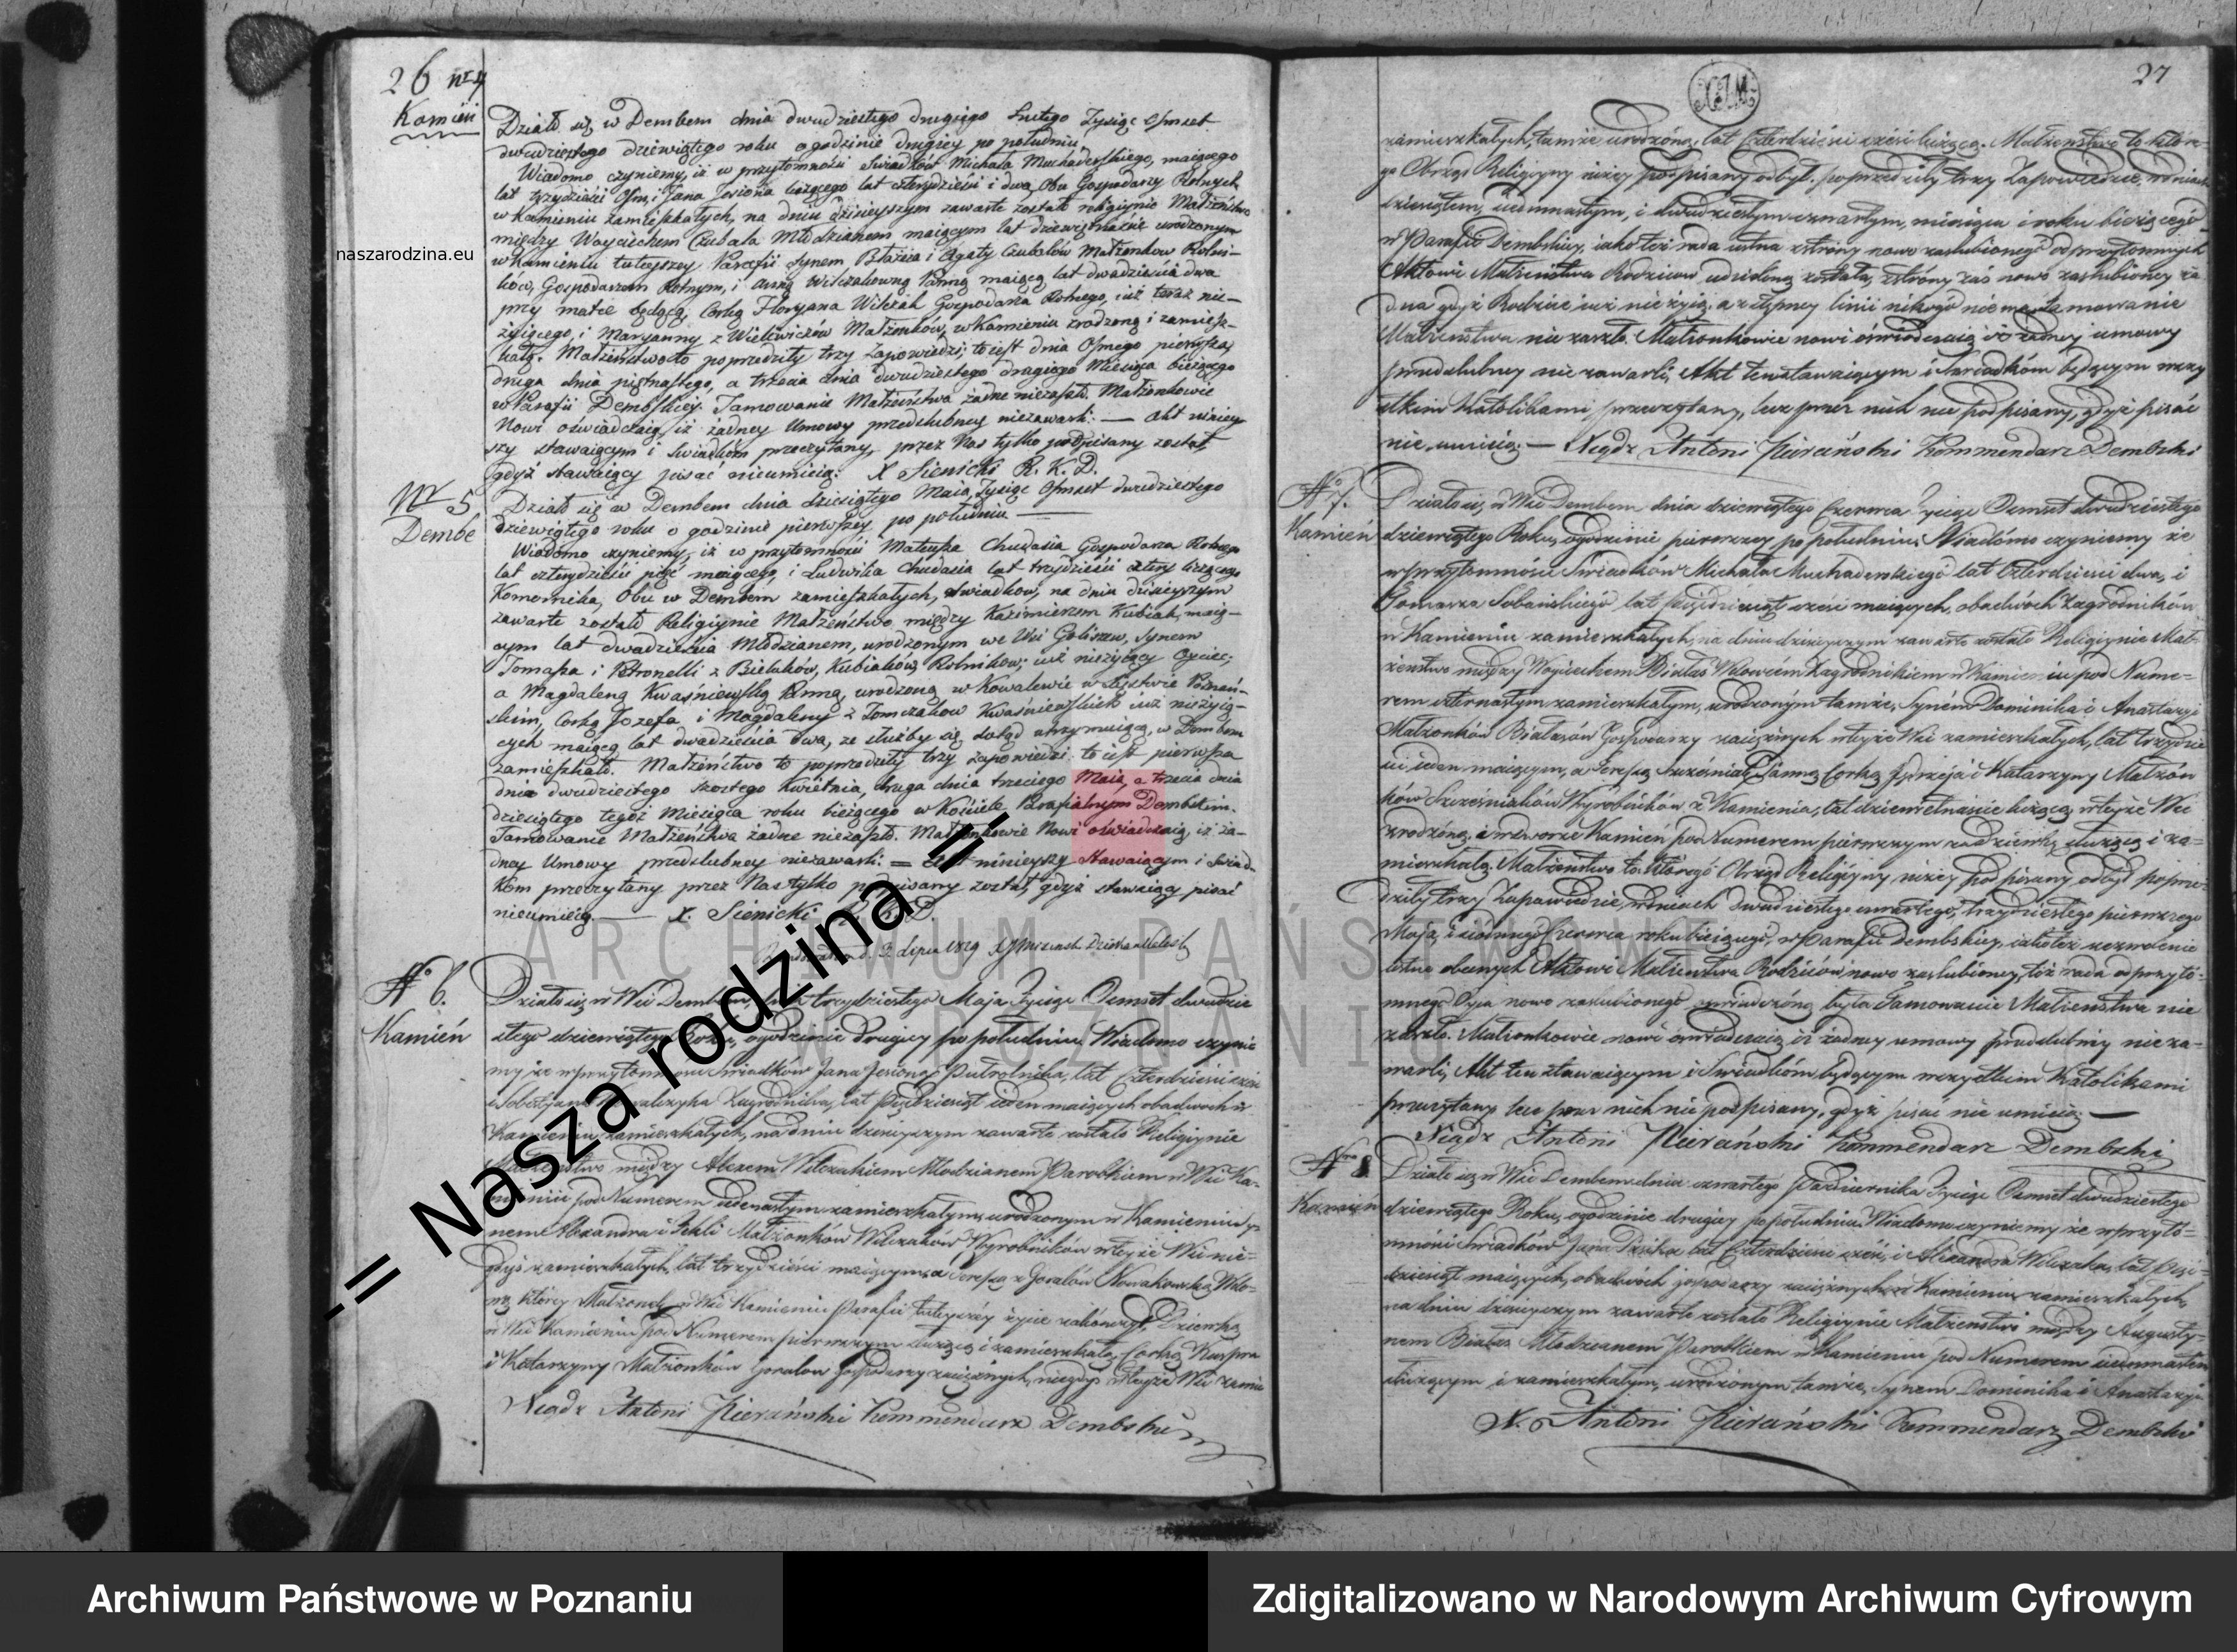 26 nr 4
Kamień
Działo się w Dembem dnia dwudziestego drugiego Lutego Tysiąc Ośmset
dwudziestego dziewiątego roku o godzinie drugiey po południu
Wiadomo czyniemy, iż w przytomności Swiadków Michała Muchaderskiego, maiącego
lat trzydzieści Ośm, i Jana Jesiona liczącego lat czterydzieści i dwa, Obu Gospodarzy Rolnych
w Kamieniu zamieszkałych, na dniu dzisieyszym zawarte zostało religiynie Małżeństwo
między Woyciechem Czubala Młodzianem maiącym lat dziewiętnaście urodzonym
w Kamieniu tuteyszey Parafii Synem Błażeia i Agaty Czubalów Małżonków Rolni-
ków, Gospodarzem Rolnym, i Anną Wilczakowną Panną maiącą lat dwadzieścia dwa
przy matce będącą, Corką Floryana Wilczak Gospodarza Rolnego, iuż teraz nie-
żyiącego, i Maryanny z Małżonków, w Kamieniu zrodzoną i zamiesz-
kałą. Małżeństwo to poprzedziły trzy Zapowiedzi; to iest dnia Osmego pierwsza,
druga dnia piętnastego, a trzecia dnia dwudziestego drugiego Miesiąca bieżącego
w Parafii Dembskiey. Tamowanie Małżeństwa żadne niezaszło. Małżonkowie
Nowi oświadczaią, iż żadney Umowy przedslubney niezawarli. — Akt niniey-
szy stawaiącym i Swiadkom przeczytany, przez Nas tylko podpisany został,
gdyż stawaiący pisać nieumieią. X Sienicki R. K. D.
Nr 5
Dembe
Działo się w Dembem dnia dziesiątego Maia Tysiąc Ośmset dwudziestego
dziewiątego roku o godzinie pierwszey po południu —
Wiadomo czyniemy, iż w przytomności Mateusza Chudasia Gospodarza Rolnego
lat czterydzieści pięć maiącego, i Ludwika Chudasia lat trzydzieści cztery liczącego
Komornika, Obu w Dembem zamieszkałych, swiadków, na dniu dzisieyszym
zawarte zostało Religiynie Małżeństwo między Kazimierzem Kubiak, maią-
cym lat dwadzieścia Młodzianem, urodzonym we Wsi Goliszew, Synem
Tomasza i Petronelli z Bielaków, Kubiaków Rolników; iuż nieżyiący Oyciec;
a Magdaleną Kwaśniewską Panną, urodzoną w Kowalewie w Xięstwie Poznań-
skim, Corką Jozefa i Magdaleny z Tomczaków Kwaśniewskich iuż nieżyią-
cych maiącą lat dwadzieścia dwa, ze służby się dotąd utrzymuiącą, w Dembem
zamieszkałą. Małżeństwo to poprzedziły trzy zapowiedzi to iest pierwsza
dnia dwudziestego szostego Kwietnia, druga dnia trzeciego Maia, a trzecia dnia
dziesiątego tegoż Miesiąca roku bieżącego w Kościele Parafialnym Dembskim.
Tamowanie Małżeństwa żadne niezaszło. Małżonkowie Nowi oświadczaią, iż ża-
dney Umowy przedslubney niezawarli: — Akt ninieyszy Stawaiącym i Swiad-
kom przeczytany przez Nas tylko podpisany został, gdyż stawaiący pisać
nieumieią. — X. Sienicki R. K. D.
d. 3. Lipca 1829
No 6.
Kamień
Działo się w Wsi Dembem, dnia trzydziestego Maja Tysiąc Osmset dwudzie
stego dziewiątego Roku, o godzinie drugiey po południu. Wiadomo czynie
my, że w przytomności Swiadków Jana Jesionego Pułrolnika, lat Czterdzieści
i Sobestyana Kowalczyka Zagrodnika, lat Pięćdziesiąt ieden maiących obadwoch w
Kamieniu zamieszkałych, na dniu dzisieyszym zawarte zostało Religiynie
Małżeństwo między Alexem Wilczakiem Młodzianem Parobkiem w Wsi Ka-
mieniu pod Numerem iedenastym zamieszkałym, urodzonym w Kamieniu sy-
nem Alexandra i Tekli Małżonków Wilczaków Wyrobników w teyże Wsi nie-
gdyś zamieszkałych, lat trzydzieści maiącym, a Teresą z Goralów Nowakowską Wdo-
wą, ktorey Małżonek w Wsi Kamieniu Parafii tuteyszey życie zakończył, Dziewką
w Wsi Kamieniu pod Numerem pierwszym służącą i zamieszkałą, Corką Kaspra
i Katarzyny Małżonków Goralow Gospodarzy zaciężnych, niegdyś w teyże Wsi zamie
Xiądz Antoni Pierański Kommendarz Dembski
27
zamieszkałych, tamże urodzoną, lat Czterdzieści sześć liczącą. Małżeństwo to które-
go Obrząd Religiyny niżey podpisany odbył, poprzedziły trzy Zapowiedzie, w dniach
dziesiątem, siedmnastym, i dwudziestym czwartym, miesiąca i roku bieżącego
w Parafii Dembskiey, iako też rada ustna z strony nowo zaslubionego od przytomnych
Aktowi Małżeństwa Rodziców udzieloną została, z strony zaś nowo zaslubioney ża
dna gdyż Rodzice iuż nie żyią, a z wstępney linii nikogo nie ma. Tamowanie
Małżeństwa nie zaszło. Małżonkowie nowi oświadczaią iż żadney umowy
przedslubney nie zawarli, Akt ten stawaiącym i Swiadkom będącym wszy
stkim Katolikami, przeczytany, lecz przez nich nie podpisany, gdyż pisać
nie umieią. — Xiądz Antoni Pierański Kommendarz Dembski
No 7.
Kamień
Działo się w Wsi Dembem dnia dziewiątego Czerwca Tysiąc Osmset dwudziestego
dziewiątego Roku, o godzinie pierwszey po południu. Wiadomo czyniemy że
w przytomności Swiadków Michała Muchaderskiego lat Czterdzieści dwa, i
Tomasza Sobańskiego lat pięćdziesiąt sześć maiących, obadwoch Zagrodników
w Kamieniu zamieszkałych, na dniu dzisieyszym zawarte zostało Religiynie Mał-
żeństwo między Woyciechem Białas Wdowcem Zagrodnikiem w Kamieniu pod Nume-
rem czternastym zamieszkałym, urodzonym tamże, Synem Dominika i Anastazyi
Małżonków Białasów Gospodarzy zaciężnych w teyże Wsi zamieszkałych, lat trzydzie
ści ieden maiącym, a Teresą Szcześniak Panną Corką Jędrzeja i Katarzyny Małżon
ków Szcześniaków Wyrobników z Kamienia, lat dziewietnaście liczącą w teyże Wsi
zrodzoną, i w dworze Kamień pod Numerem pierwszym za dziewkę służącą i za-
mieszkałą. Małżeństwo to, którego Obrząd Religiyny niżey podpisany odbył poprze-
dziły trzy Zapowiedzie, w dniach dwudziestego czwartego, trzydziestego pierwszego
Maja, i siódmego Czerwca roku bieżącego, w Parafii Dembskiey, iako też zezwolenie
ustne obecnych Aktowi Małżeństwa Rodziców nowo zaslubioney, tóż rada od przyto-
mnego Oyca nowo zaslubionego oświadczóną była. Tamowanie Małżeństwa nie
zaszło. Małżonkowie nowi oświadczaią iż żadney umowy przedslubney nie za-
warli, Akt ten stawaiącym i Swiadkom, będącym wszystkim Katolikami
przeczytany, lecz przez nich nie podpisany, gdyż pisać nie umieią. —
Xiądz Antoni Pierański Kommendarz Dembski
Nro 8
Kamień
Działo się w Wsi Dembem dnia czwartego Października Tysiąc Osmset dwudziestego
dziewiątego Roku, o godzinie drugiey po południu. Wiadomo czyniemy że w przyto-
mności Swiadków Jana lat Czterdzieści sześć, i Alexandra Wilczaka, lat Pięć
dziesiąt maiących, obadwóch gospodarzy zaciężnych w Kamieniu zamieszkałych,
na dniu dzisieyszym zawarte zostało Religiynie Małżeństwo między Augusty-
nem Białas Młodzianem Parobkiem w Kamieniu pod Numerem siedmnastem
służącym i zamieszkałym, urodzonym tamże, Synem Dominika i Anastazyi
X. Antoni Pierański Kommendarz Dembski
naszarodzina.eu
-= Nasza rodzina =-
ARCHIWUM PAŃSTWOWE
W POZNANIU
Archiwum Państwowe w Poznaniu
Zdigitalizowano w Narodowym Archiwum Cyfrowym